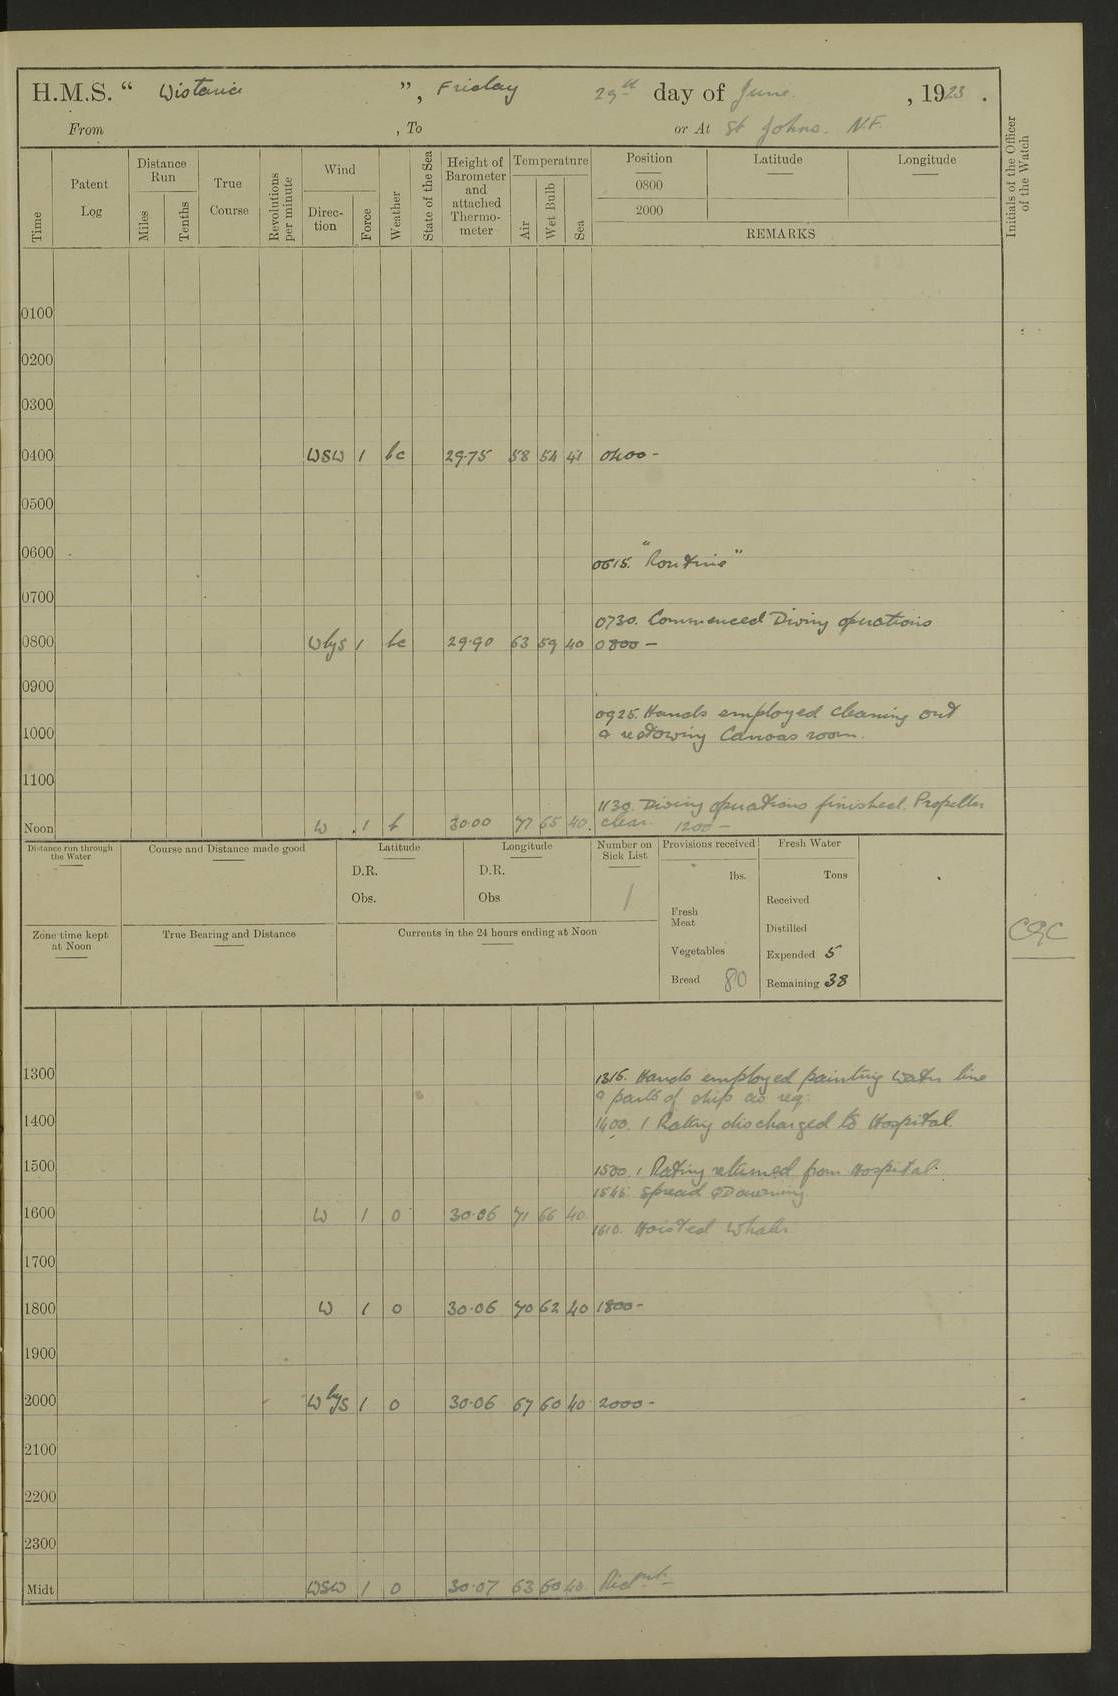 H.M.S. “ Wistaria ”, Friday 29th day of June, 1923.
From , To or At St Johns. N.F.
Time
Patent Log
Distance Run
Miles
Tenths
True Course
Revolutions per minute
Wind
Direc-tion
Force
Weather
State of the Sea
Height of Barometer and attached Thermo-meter
Temperature
Air
Wet Bulb
Sea
Position
0800
2000
Latitude
Longitude
REMARKS
Initials of the Officer of the Watch
0100
0200
0300
0400 WSW 1 bc 29.75 58 54 41 0400 -
0500
0600
0615. "Routine"
0700
0730. Commenced Diving operations
0800 WbyS 1 bc 29.90 63 59 40 0800 -
0900
0925. Hands employed cleaning out
1000 & restowing Canvas room.
1100
1130. Diving operations finished. Propeller
Noon W 1 b 30.00 77 65 40. clear. 1200 -
Distance run through the Water
Course and Distance made good
Latitude
D.R.
Obs.
Longitude
D.R.
Obs
Number on Sick List
1
Provisions received
lbs.
Fresh Meat
Vegetables
Bread 80
Fresh Water
Tons
Received
Distilled
Expended 5
Remaining 38
Zone time kept at Noon
True Bearing and Distance
Currents in the 24 hours ending at Noon
1300
1315. Hands employed painting water line
& parts of ship as req.
1400 1400. 1 Rating discharged to Hospital.
1500 1500. 1 Rating returned from Hospital.
1545. Spread awning
1600 W 1 0 30.06 71 66 40
1610. Hoisted Whaler
1700
1800 W 1 0 30.06 70 62 40 1800 -
1900
2000 WbyS 1 0 30.06 67 60 40 2000 -
2100
2200
2300
Midt WSW 1 0 30.07 63 60 40 Midnt -